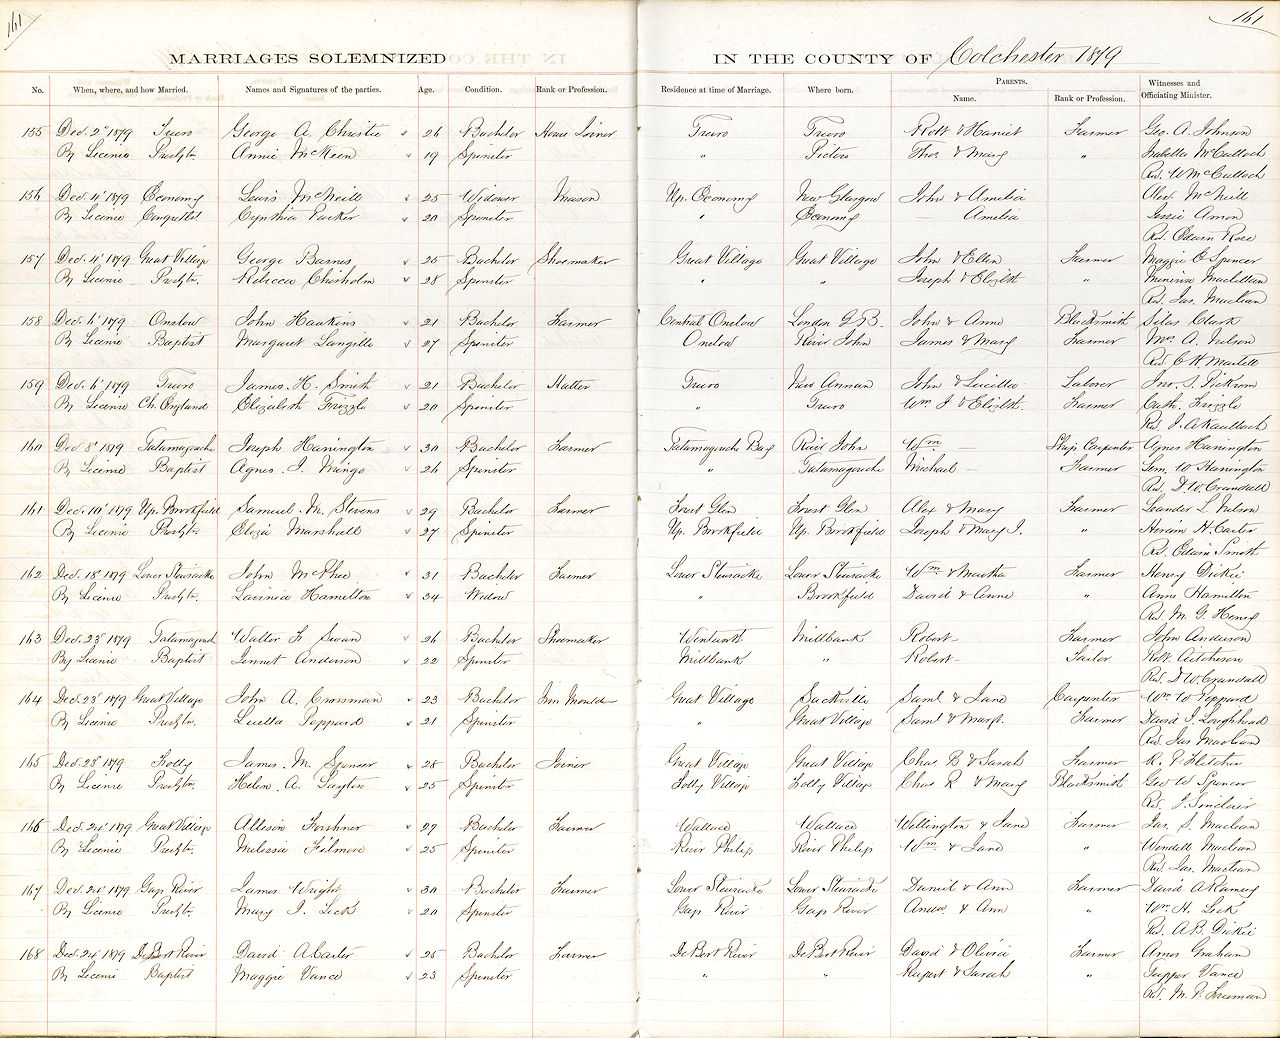 161
161
MARRIAGES SOLEMNIZED IN THE COUNTY OF Colchester 1879
No. When, where, and how Married. Names and Signatures of the parties. Age. Condition. Rank or Profession. Residence at time of Marriage. Where born. PARENTS. Name. Rank or Profession. Witnesses and Officiating Minister.
155 Dec. 2" 1879 Truro George A. Christie 26 Bachelor House Joiner Truro Truro Robt & Harriet Farmer Geo. A. Johnson
By License Presbytn. Annie McKeen 19 Spinster " Pictou Thos & Mary " Isabella McCulloch
Rev. W McCulloch
156 Dec. 4" 1879 Economy Louis McNeill 25 Widower Mason Up. Economy New Glasgow John & Amelia Alex. McNeill
By License Cynthia Parker 20 Spinster " Economy — Amelia
Rev. Edwin Rose
157 Dec. 4" 1879 Great Village George Barnes 25 Bachelor Shoemaker Great Village Great Village John & Ellen Farmer Maggie C Spencer
By License Presbytn. Rebecca Chisholm 28 Spinster " " Joseph & Elizbth " Minerva MacLellan
Rev. Jas. MacLean
158 Dec. 6" 1879 Onslow John Hawkins 21 Bachelor Farmer Central Onslow London G.B. John & Anne Blacksmith Silas Clark
By License Baptist Margaret Langille 27 Spinster Onslow River John James & Mary Farmer Mrs A. Nelson
Rev. C W. Martell
159 Dec. 6" 1879 Truro James. H. Smith 21 Bachelor Hatter Truro New Annan John & Lucilla Laborer Jno. S. Dickson
By License Ch. England Elizabeth Frizzle 20 Spinster " Truro Wm J & Elizbth. Farmer Cath. Frizzle
Rev. J. A Kaulbach
160 Dec 8" 1879 Tatamagouche Joseph Harrington 30 Bachelor Farmer Tatamagouche Bay River John Wm — Ship Carpenter Agnes Harrington
By License Baptist Agnes. J. Mingo 26 Spinster " Tatamagouche Michael — Farmer Lem. W Harrington
Rev. D. W. Crandall
161 Dec. 10" 1879 Up. Brookfield Samuel. M. Stevens 29 Bachelor Farmer Forest Glen Forest Glen Alex & Mary Farmer Leander L. Nelson
By License Presbytn. Eliza Marshall 27 Spinster Up. Brookfield Up. Brookfield Joseph & Mary J. " Hiram H. Carter
Rev. Edwin Smith
162 Dec. 18" 1879 Lower Stewiacke John McPhee 31 Bachelor Farmer Lower Stewiacke Lower Stewiacke Wm & Martha Farmer Henry Dickie
By License Presbytn. Lavinia Hamilton 34 Widow " Brookfield David & Anne " Anne Hamilton
Rev. M. G. Henry
163 Dec. 23" 1879 Tatamagouche Walter F. Swan 26 Bachelor Shoemaker Wentworth Millbank Robert — Farmer John Anderson
By License Baptist Jennet Anderson 22 Spinster Millbank " Robert — Tailor Robt. Aitcheson
Rev. D W. Crandall
164 Dec. 23" 1879 Great Village John A. Crossman 23 Bachelor Iron Moulder Great Village Sackville Saml. & Jane Carpenter Wm W Peppard
By License Presbytn. Luella Peppard 21 Spinster " Great Village Saml & Margt. Farmer David J. Loughhead
Rev. Jas MacLean
165 Dec. 23" 1879 Folly James. M. Spencer 28 Bachelor Joiner Great Village Great Village Chas B & Sarah Farmer A. P. Fletcher
By License Presbytn. Helen. A. Layton 25 Spinster Folly Village Folly Village Chas R & Mary Blacksmith Geo W Spencer
Rev. J. Sinclair
166 Dec. 24" 1879 Great Village Allison Forshner 27 Bachelor Farmer Wallace Wallace Wellington & Jane Farmer Jas. S. MacLean
By License Presbytn. Melissa Filmore 25 Spinster River Philip River Philip Wm & Jane " Wendell MacLean
Rev. Jas. MacLean
167 Dec. 24" 1879 Gays River James Wright 30 Bachelor Farmer Lower Stewiacke Lower Stewiacke Daniel & Ann Farmer David A Ramsey
By License Presbytn. Mary J. Lock 20 Spinster Gays River Gays River Andw & Ann " Wm. H. Lock
Rev. A B. Dickie
168 Dec. 24" 1879 DeBert River David A Carter 25 Bachelor Farmer DeBert River DeBert River David & Olivia Farmer Amos Graham
By License Baptist Maggie Vance 23 Spinster " " Rupert & Sarah " Tupper Vance
Rev. M. P. Freeman